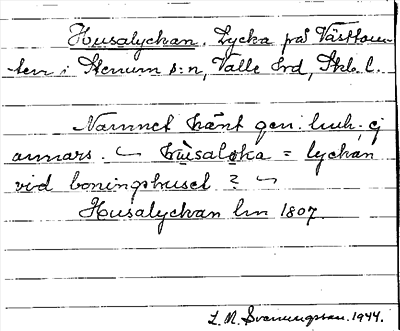 Husalyckan. Lycka på Västtom-
ten i Stenum s:n, Valle hrd, Skb. l.
Namnet känt gen. huh. ej
annars. ~ hùsaløka = lyckan
vid boningshuset? ~
Husalyckan hm 1807.
L. M. Svenungsson. 1944.